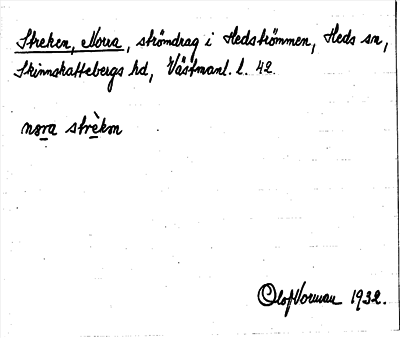 Streken, Norra, strömdrag i Hedströmmen, Heds sn,
Skinnskattebergs hd, Västmanl. l. 42.
nora strèkən
Olof Vorman 1932.